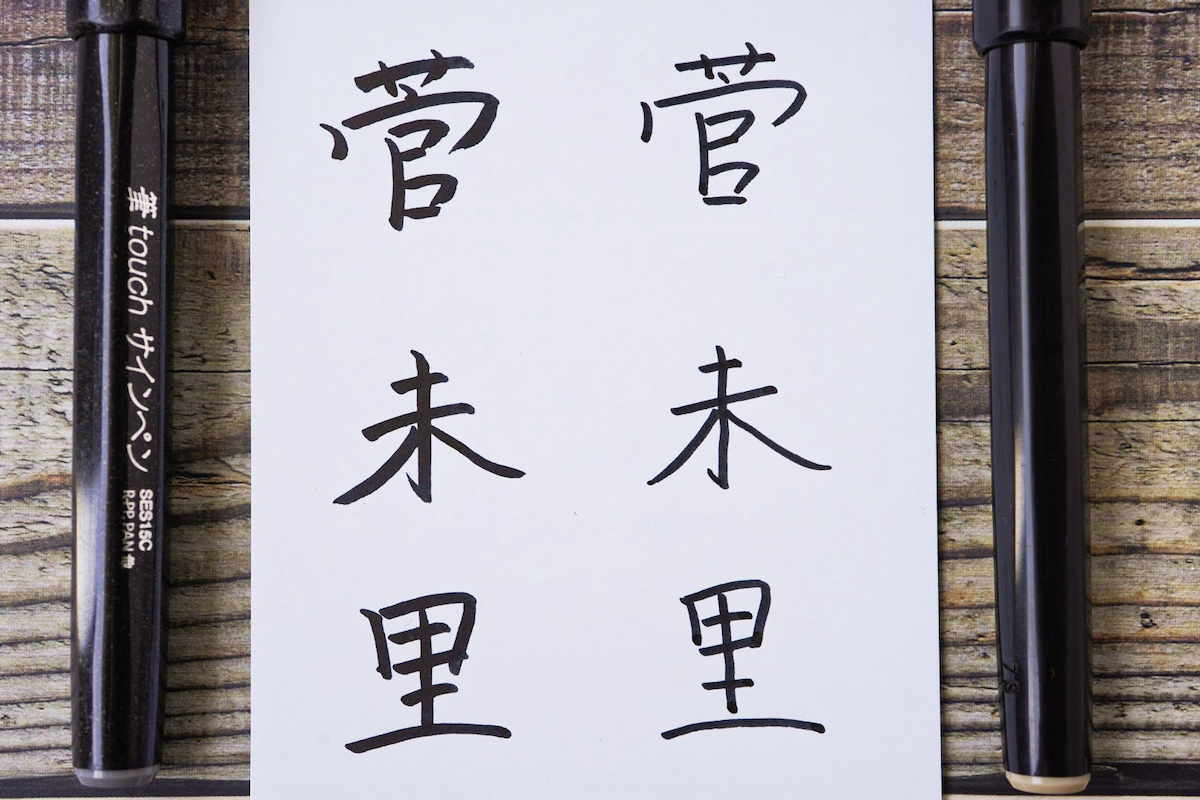 菅未里
菅未里
筆touchサインペン
SES15C
R.PP.PAN